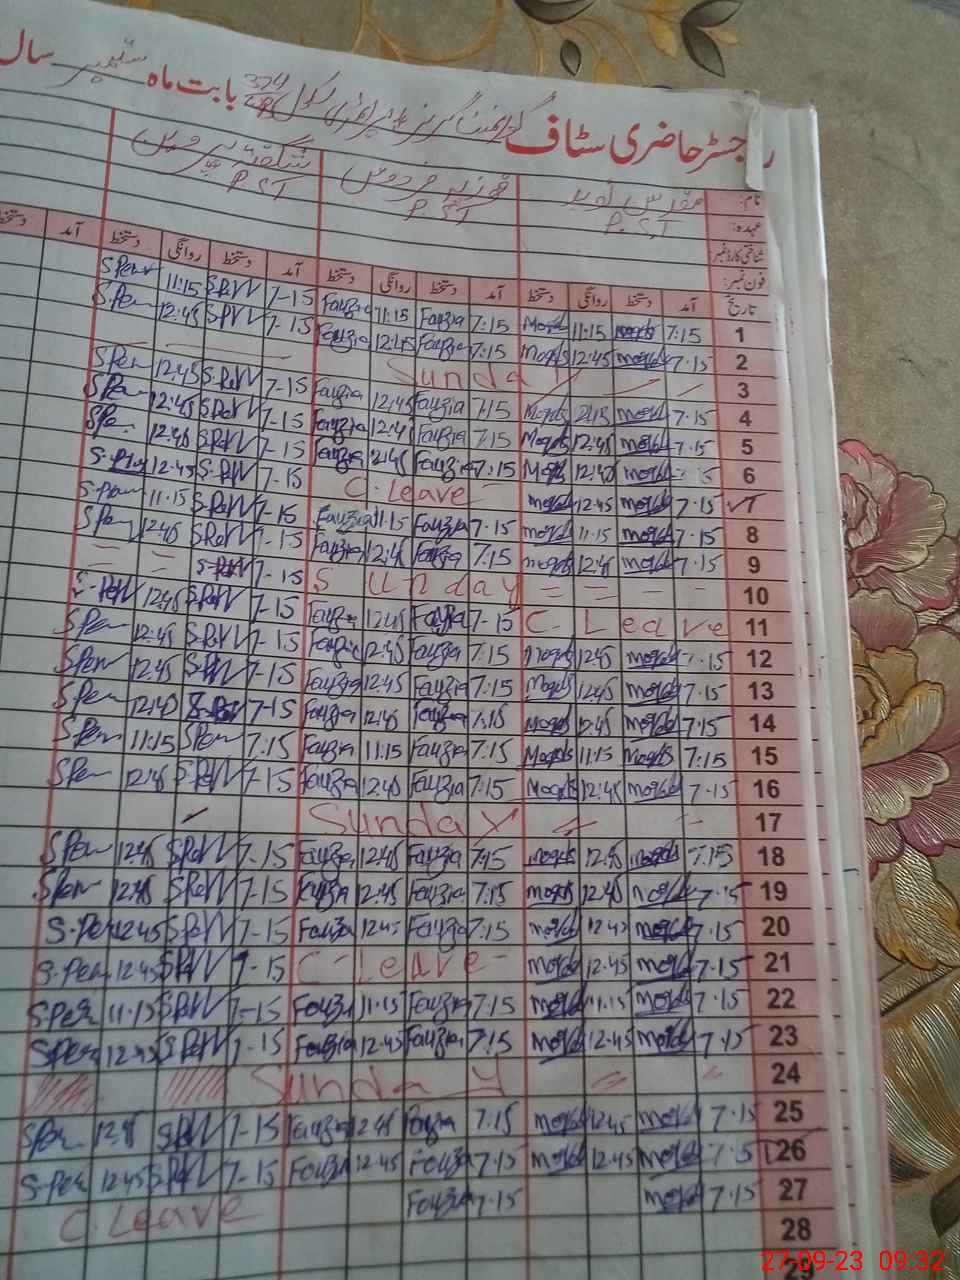 رجسٹر حاضری سٹاف گورنمنٹ گرلز پرائمری سکول 324 بابت ماہ ستمبر سال
نام: مقدس نوید فوزیہ فردوس شگفتہ پروین
عہدہ: P.S.T P.S.T P.S.T
شناختی کارڈ نمبر:
فون نمبر:
تاریخ آمد دستخط روانگی دستخط آمد دستخط روانگی دستخط آمد دستخط روانگی دستخط آمد دستخط
S.Perv 11:15 S.PerV 7-15 Fauzia 11:15 Fauzia 7:15 Moqds 11:15 moqds 7:15 1
S.Perv 12:45 S.PerV 7-15 Fauzia 12:45 Fauzia 7:15 Moqds 12:45 moqds 7:15 2
Sunday 3
S.Perv 12:45 S.PerV 7-15 Fauzia 12:45 Fauzia 7:15 Moqds moqds 7.15 4
12:45 S.PerV 7-15 Fauzia Fauzia 7:15 Moqds 12:45 moqds 7.15 5
12:45 S.PerV 7-15 Fauzia Fauzia 7:15 Moqds moqds 15 6
12:45 S.PerV 7-15 C. Leave moqds 12:45 moqds 7.15 7
11:15 S.PerV 7-15 Fauzia 11:15 Fauzia 7.15 moqds 11:15 moqds 7.15 8
12:45 S.PerV 7-15 Fauzia Fauzia 7.15 moqds 12:45 moqds 7.15 9
7-15 Sunday 10
12:45 S.PerV 7-15 Fauzia 12:45 Fauzia 7-15 C. Leave 11
S.Perv 12:45 S.PerV 7-15 Fauzia 12:45 Fauzia 7:15 moqds 12:45 moqds 7.15 12
S.Perv 12:45 S.PerV 7-15 Fauzia 12:45 Fauzia 7:15 Moqds 12:45 moqds 7.15 13
S.Perv 7-15 Fauzia 12:45 Fauzia 7.15 Moqds 12:45 moqds 7.15 14
S.Perv 11:15 S.Perv 7.15 Fauzia 11:15 Fauzia 7.15 Moqds 11:15 moqds 7:15 15
S.Perv 12:45 S.PerV 7-15 Fauzia Fauzia 7:15 Moqds 12:45 moqds 7.15 16
Sunday 17
S.Perv 12:45 S.PerV 7-15 Fauzia 12:45 Fauzia 7:15 moqds 12:45 moqds 7.15 18
S.Perv 12:45 S.PerV 7-15 Fauzia 12:45 Fauzia 7.15 moqds moqds 7.15 19
S.Per 12:45 S.PerV 7-15 Fauzia 12:45 Fauzia 7:15 moqds moqds 7.15 20
S.Per 12:45 7-15 C-Leave moqds 12:45 moqds 7.15 21
S.Per 11:15 S.PerV 7-15 Fauzia 11:15 Fauzia 7.15 moqds 11:15 moqds 7.15 22
S.Per S.PerV 7-15 Fauzia 12.45 Fauzia 7.15 moqds 12.45 moqds 7.15 23
Sunday 24
S.Per S.PerV 7-15 Fauzia 12:45 Fauzia 7.15 moqds 12:45 moqds 7.15 25
S.Per 12:45 S.PerV 7-15 Fauzia 12:45 Fauzia 7.15 moqds 12:45 moqds 7.15 26
Fauzia 7.15 moqds 7.15 27
C. Leave 28
27-09-23 09:32